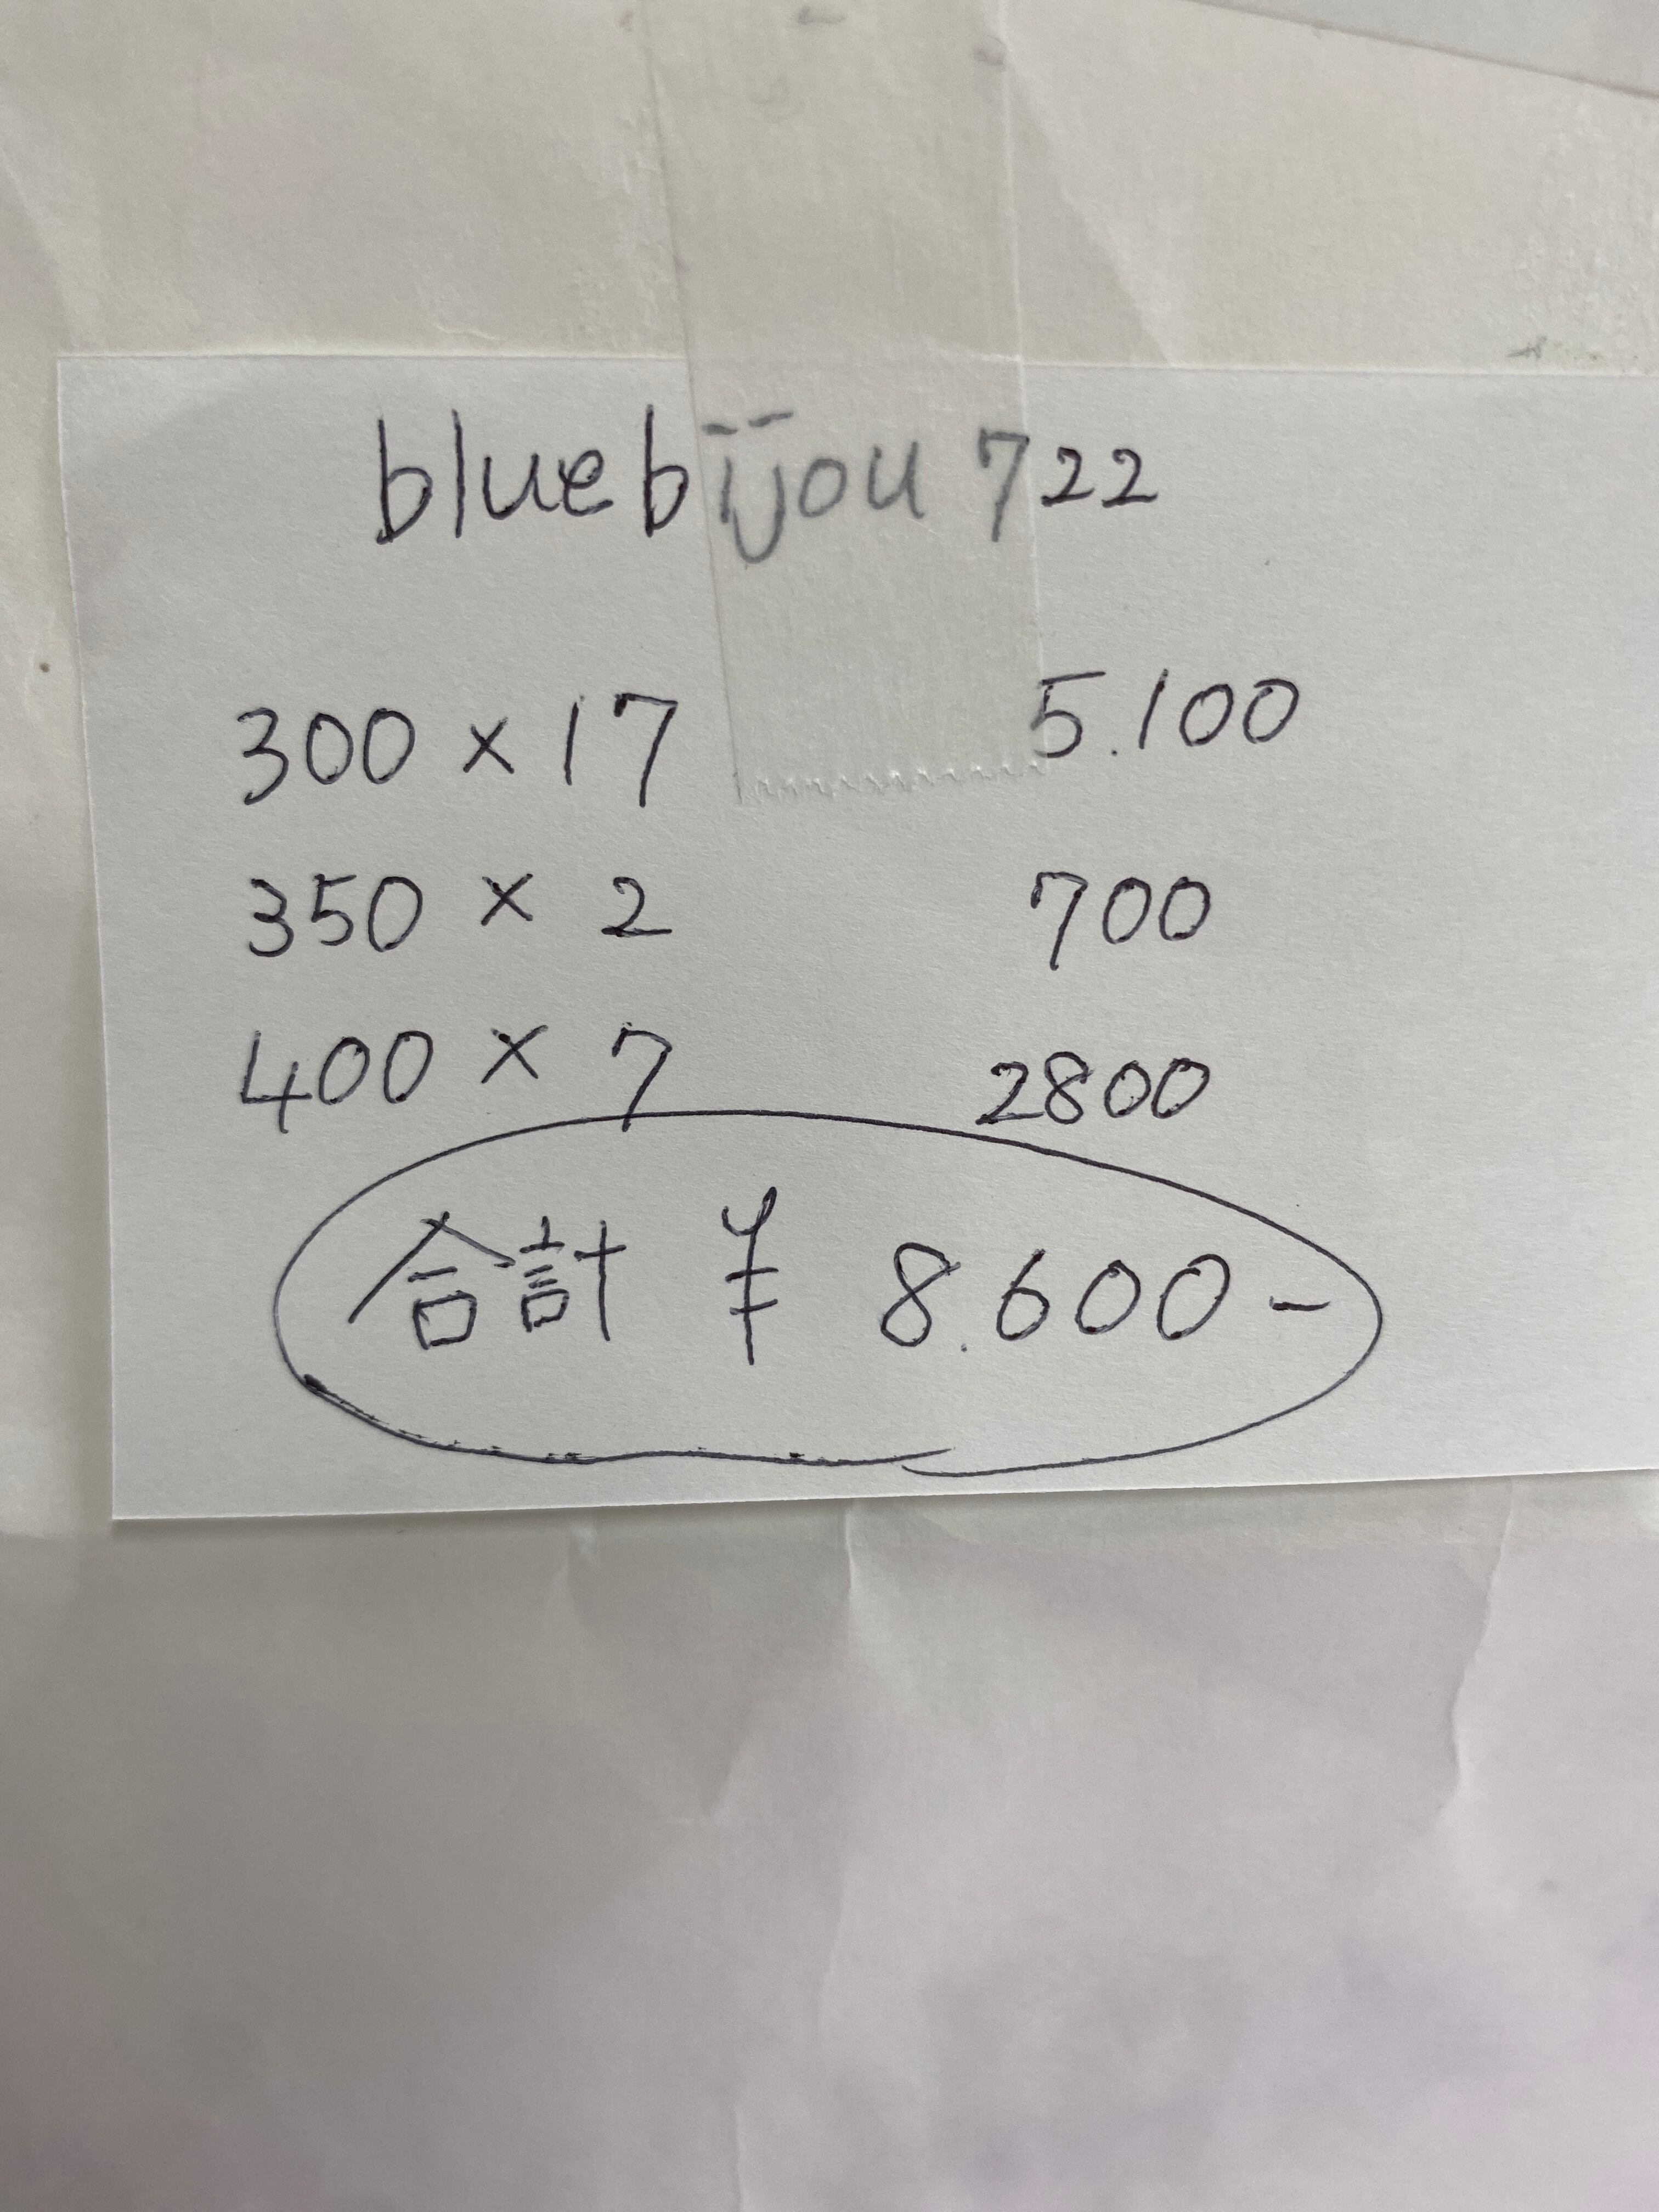 bluebijou722
300 × 17 5.100
350 × 2 700
400 × 7 2800
合計 ¥ 8.600-